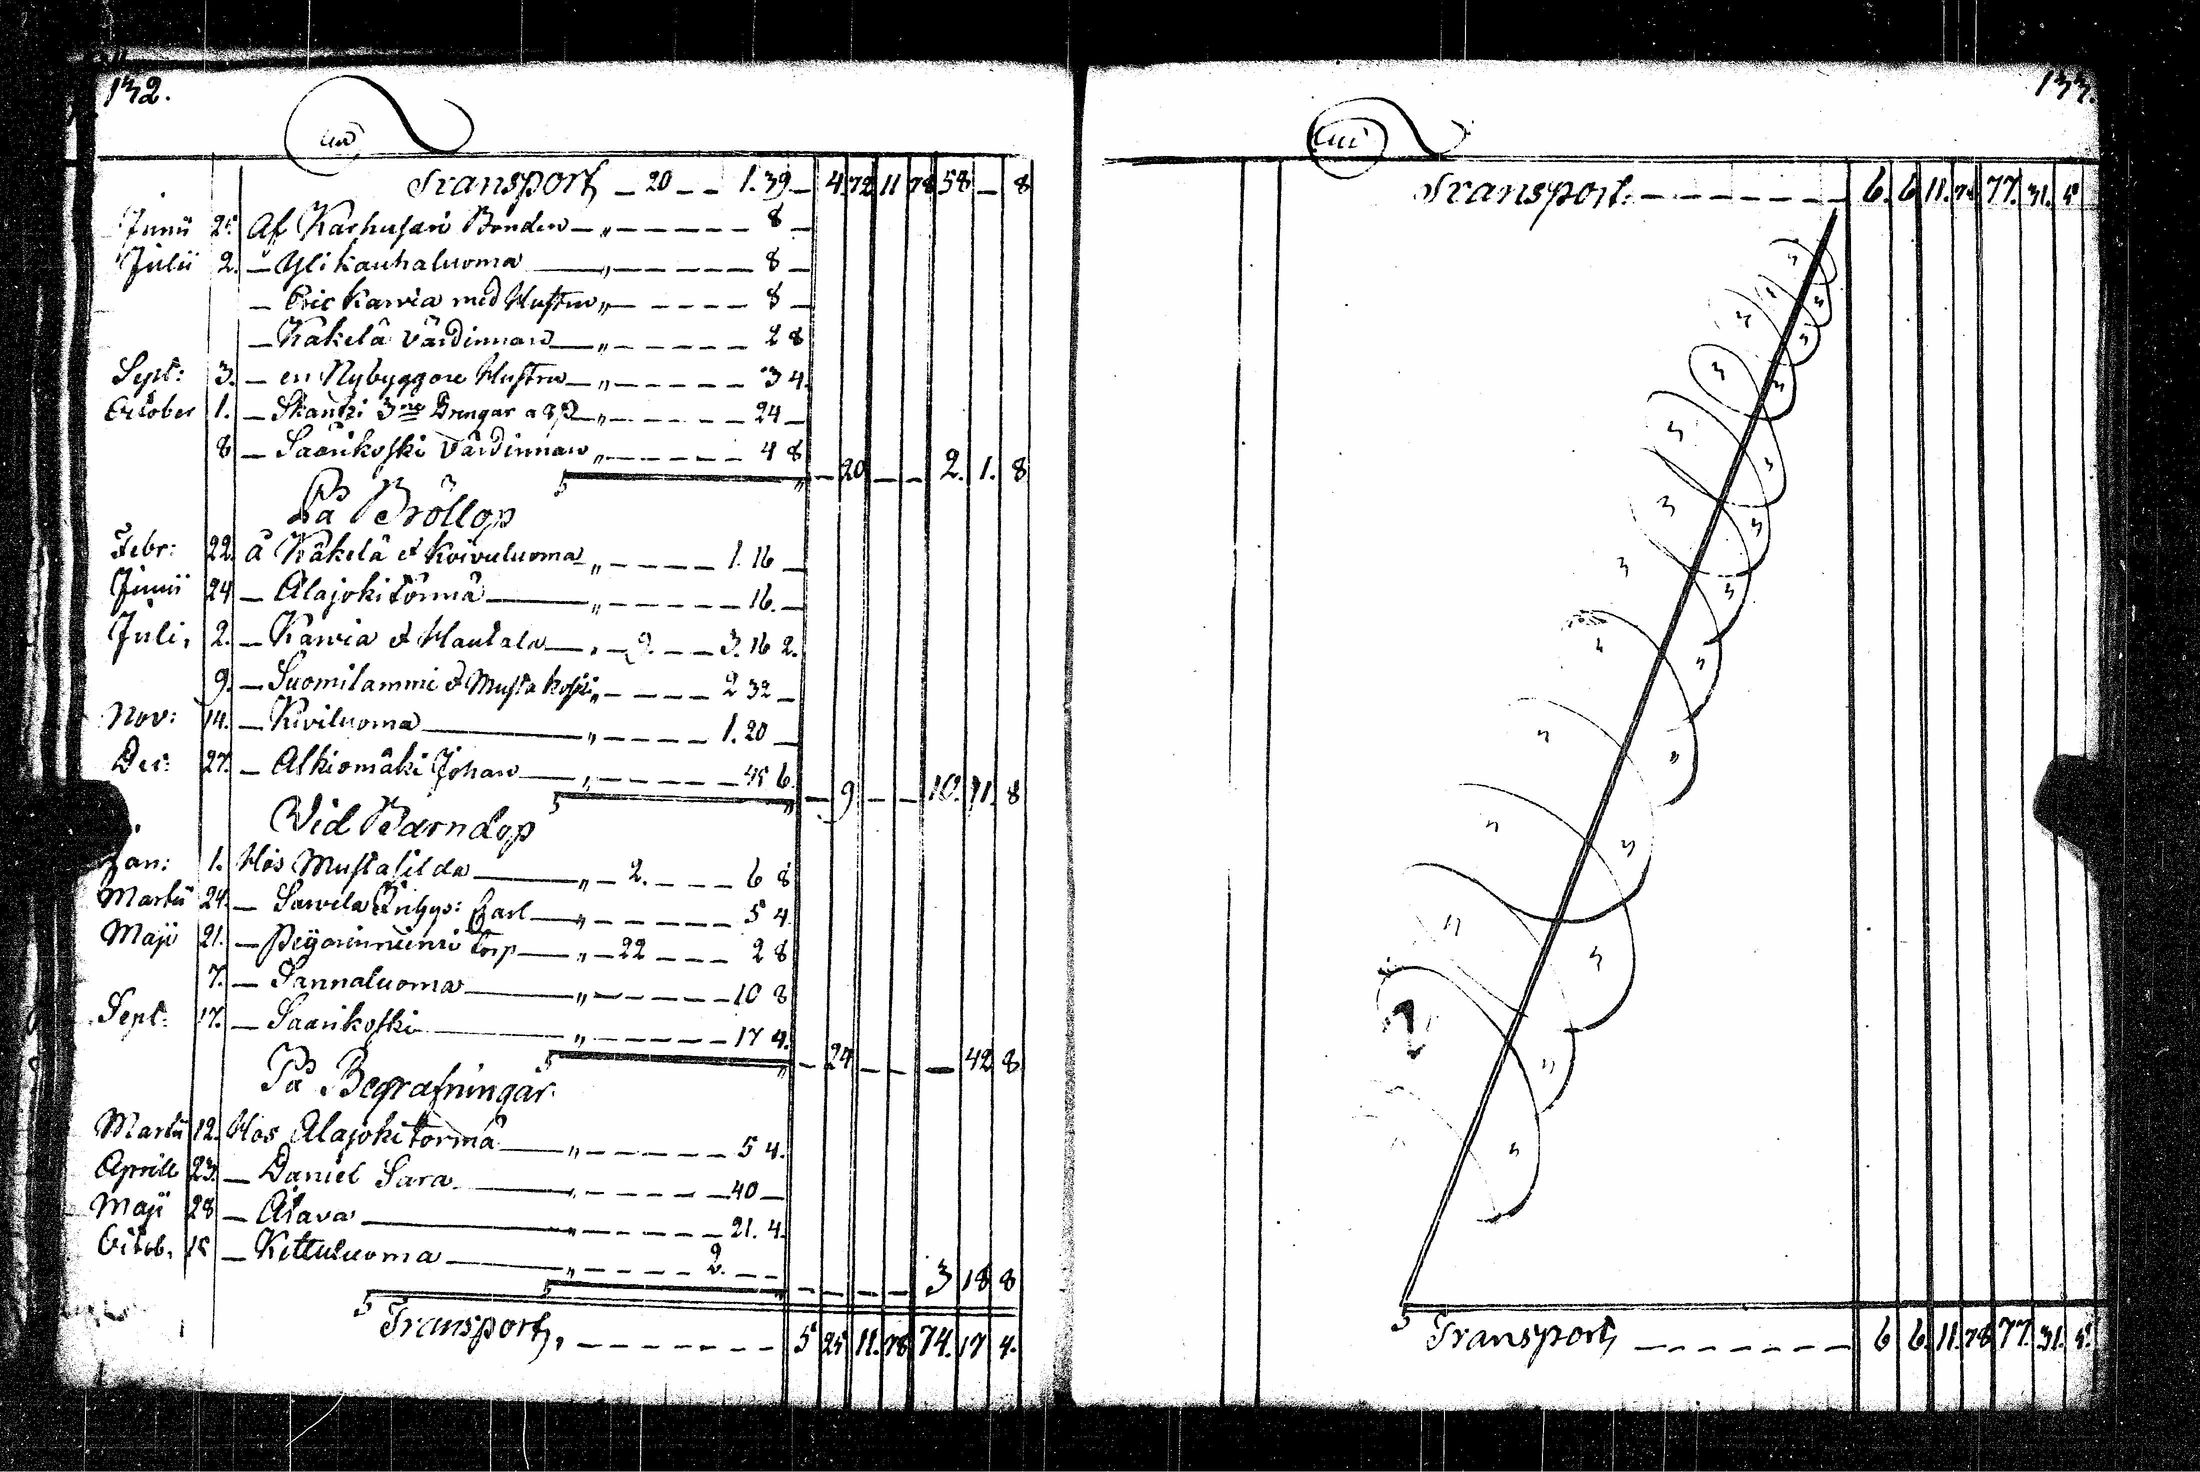 132.
Transport, – 20 – – 1.39 – 4 72 11 78 58 – 8
Junii 25 Af Karhusari Bonden – „ – – – – – 8 –
Julii 2. – Ylikauhaluoma – „ – – – – – 8 –
– Eric Karvia med Hustru „ – – – – – 8 –
– Käkelä Värdinnan – „ – – – – – 2 8
Sept: 3. – en Nybyggare Hustru – „ – – – – 3 4.
October 1. – Skantzi 3ne Drengar a 8 – „ – – – – 24 –
8 – Saarikoski Värdinnan „ – – – – 4 8
– 20 – – 2. 1. 8
På Bröllop
Febr: 22. å Käkelä et Koivuluoma „ – – – – 1. 16 –
Junii 24 – Alajokitörmä – „ – – – – 16. –
Juli, 2. – Karvia et Hautala – „ 9. – – 3. 16 2.
9. – Suomilammi et Mustakoski „ – – – – 2 32 –
Nov: 14. – Kiviluoma – „ – – – – 1. 20 –
Dec: 27. – Alkiomäki Johan – „ – – – – 45 6
– 9 – – 10. 41. 8
Vid Barndop
Jan: 1. Hos Mustasilda – „ – 2. – – – 6 8
Martii 24. – Sawela Carl – „ – – – – 5 4.
Maji 21. – Torp – „ – 22 – – – 2 8
7. – Sannaluoma – „ – – – – 10 8
Sept: 17. – Saarikoski – „ – – – – 17 4.
– 24 – – – 42 8
På Begrafningar
Martii 12. Hos Alajokitörmä – „ – – – – 5 4.
Aprill 23. – Daniel Sara – „ – – – – 40 –
Maji 28 – Alava – „ – – – – 21. 4.
Octob. 15 – Kettuluoma – „ – – – – 2. – –
– – – – 3 18 8
Transport, – – – – – – 5 25 11. 78 74. 17 4.
133.
Transport. – – – – – – – 6. 6 11. 78 77. 31. 5
Transport, – – – – – – – 6 6. 11. 78 77. 31. 5.